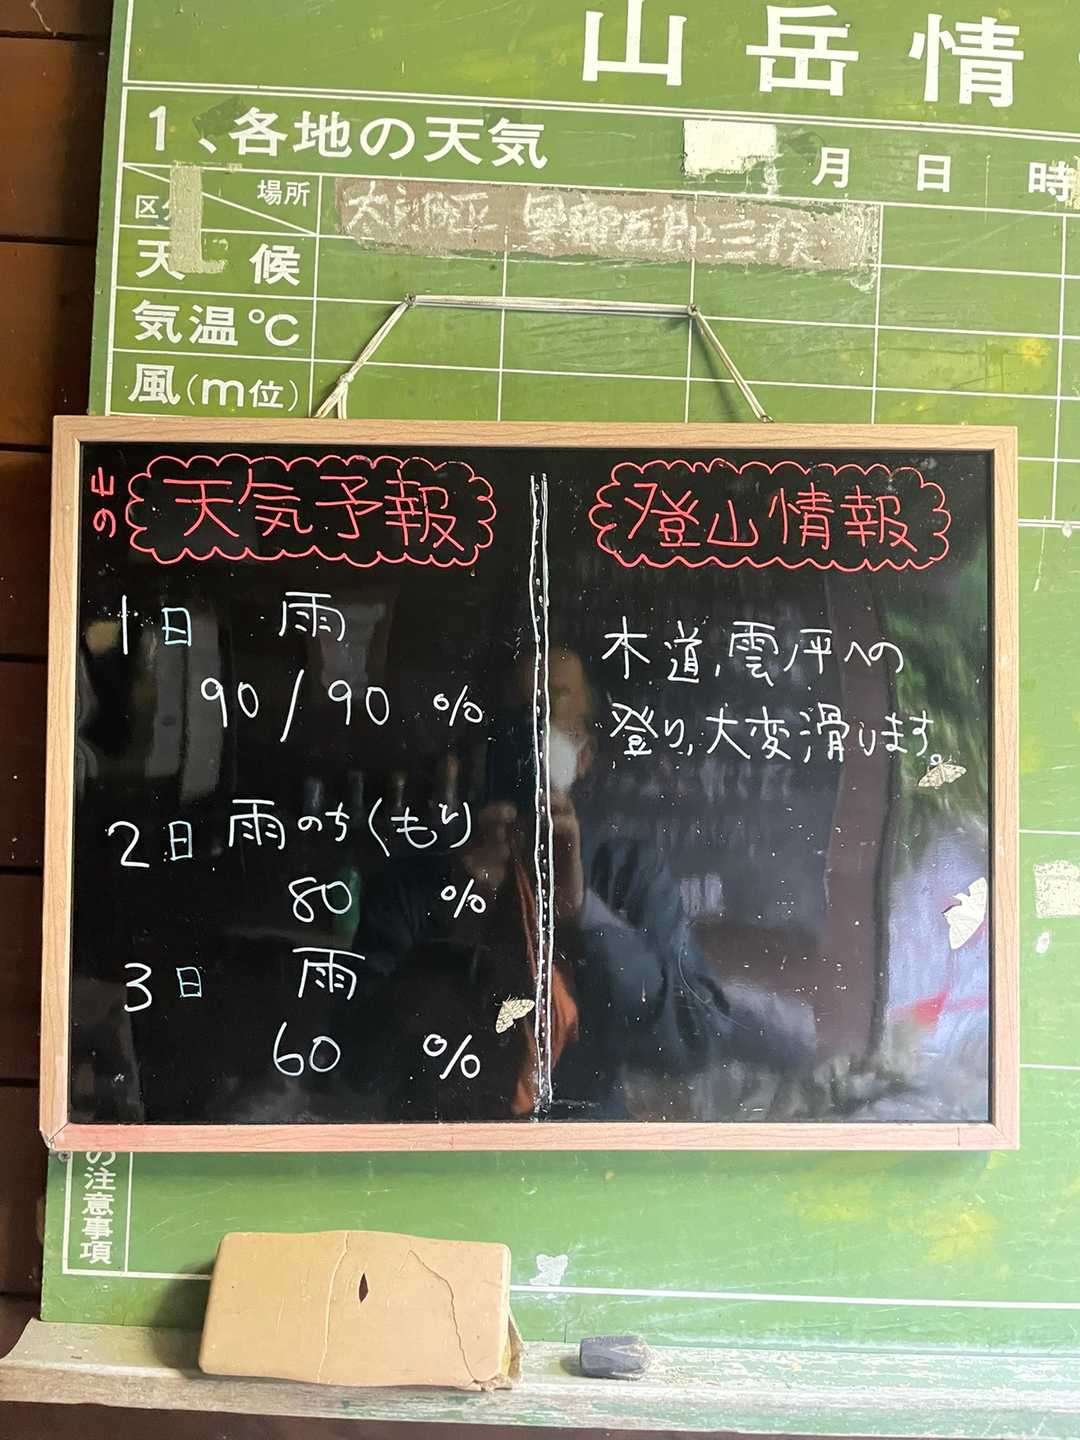 山岳情
1、各地の天気
月 日 時
場所
区分
太郎平 黒部五郎 三俣
天候
気温℃
風(m位)
山の 天気予報
1日 雨
90/90 %
2日 雨のちくもり
80 %
3日 雨
60 %
登山情報
木道、雲ノ平への
登り、大変滑ります。
の注意事項